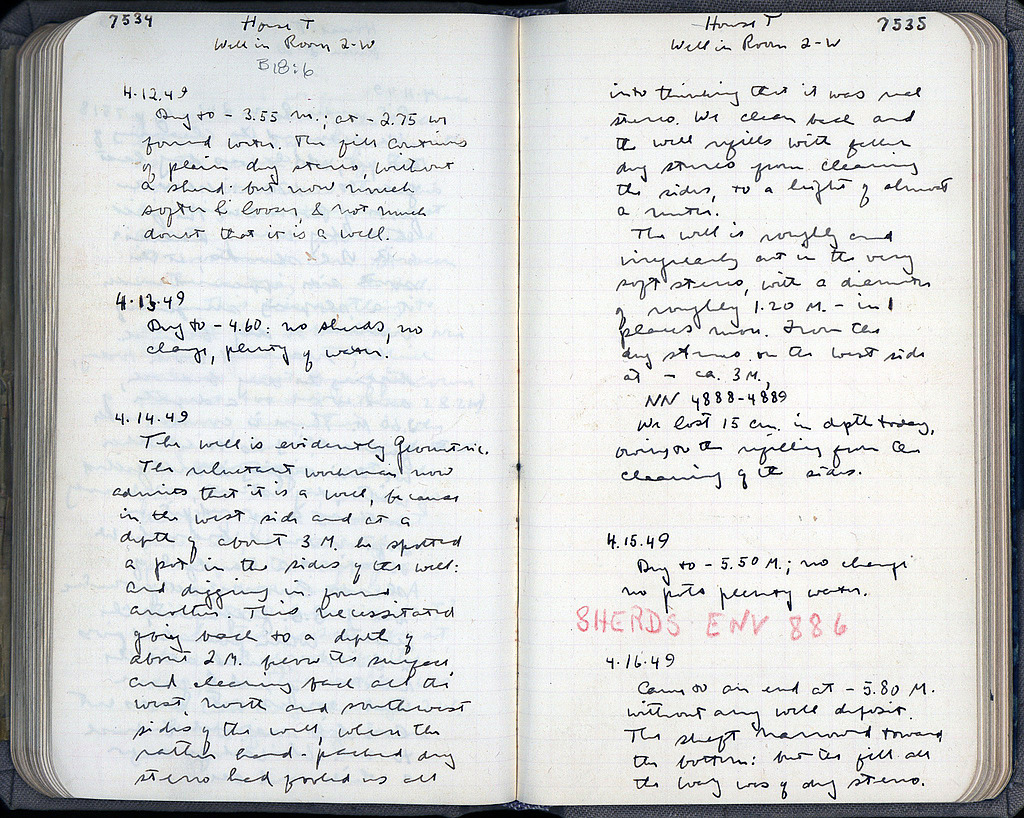 7534
House T
Well in Room 2-W
B18:6
4.12.49
Dug to - 3.55 m.; at - 2.75 we
found water. The fill continues
of plain dug stereo, without
a sherd: but now much
softer & looser, & not much
doubt that it is a well.
4.13.49
Dug to - 4.60: no sherds, no
change, plenty of water.
4.14.49
The well is evidently Geometric.
The reluctant workman now
admits that it is a well, because
in the west side and at a
depth of about 3 M. he spotted
a pot in the sides of the well:
and digging in found
another. This necessitated
going back to a depth of
about 2 M. below the surface,
and cleaning back all the
west, north and southwest
sides of the well, where the
rather hard-packed dug
stereo had fooled us all
House T
7535
Well in Room 2-W
into thinking that it was real
stereo. We clean back and
the well refills with fallen
dug stereo from cleaning
the sides, to a height of almost
a meter.
The well is roughly and
irregularly cut in the very
soft stereo, with a diameter
of roughly 1.20 M. - in
places more. From the
dug stereo on the west side
at - ca. 3 M.,
NN 4888-4889
We lost 15 cm. in depth today,
owing to the refilling from the
cleaning of the sides.
4.15.49
Dug to - 5.50 M.; no change
no pots plenty water.
SHERDS ENV 886
4.16.49
Came to an end at - 5.80 M.
without any well deposit.
The shaft narrowed toward
the bottom: but the fill all
the way was of dug stereo.